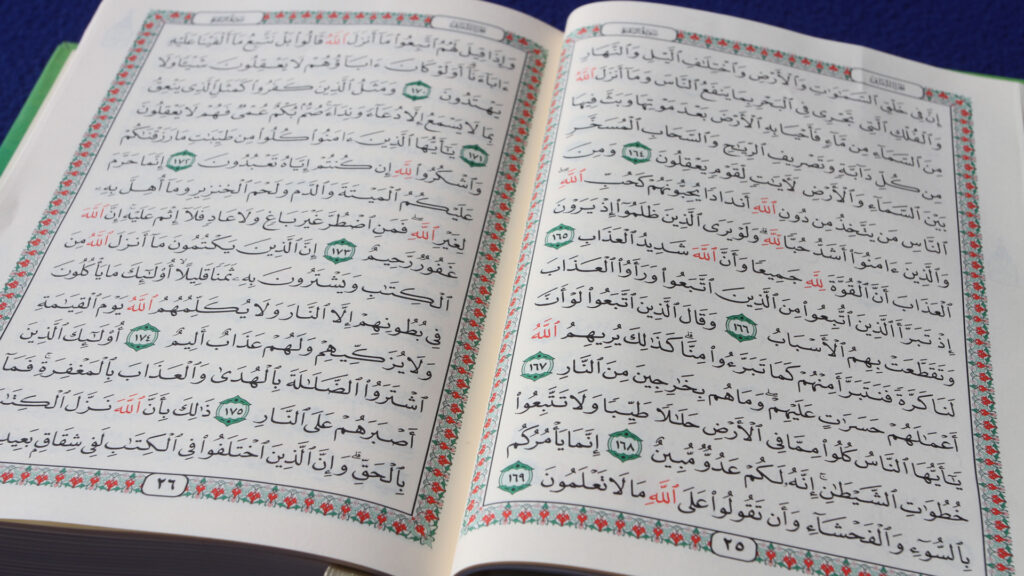 إِنَّ فِي خَلْقِ ٱلسَّمَٰوَٰتِ وَٱلْأَرْضِ وَٱخْتِلَٰفِ ٱلَّيْلِ وَٱلنَّهَارِ
وَٱلْفُلْكِ ٱلَّتِي تَجْرِي فِي ٱلْبَحْرِ بِمَا يَنفَعُ ٱلنَّاسَ وَمَآ أَنزَلَ ٱللَّهُ
مِنَ ٱلسَّمَآءِ مِن مَّآءٍ فَأَحْيَا بِهِ ٱلْأَرْضَ بَعْدَ مَوْتِهَا وَبَثَّ فِيهَا
مِن كُلِّ دَآبَّةٍ وَتَصْرِيفِ ٱلرِّيَٰحِ وَٱلسَّحَابِ ٱلْمُسَخَّرِ
بَيْنَ ٱلسَّمَآءِ وَٱلْأَرْضِ لَأٓيَٰتٍ لِّقَوْمٍ يَعْقِلُونَ ١٦٤ وَمِنَ
ٱلنَّاسِ مَن يَتَّخِذُ مِن دُونِ ٱللَّهِ أَندَادًا يُحِبُّونَهُمْ كَحُبِّ ٱللَّهِۖ
وَٱلَّذِينَ ءَامَنُوٓا۟ أَشَدُّ حُبًّا لِّلَّهِۗ وَلَوْ يَرَى ٱلَّذِينَ ظَلَمُوٓا۟ إِذْ يَرَوْنَ
ٱلْعَذَابَ أَنَّ ٱلْقُوَّةَ لِلَّهِ جَمِيعًا وَأَنَّ ٱللَّهَ شَدِيدُ ٱلْعَذَابِ ١٦٥
إِذْ تَبَرَّأَ ٱلَّذِينَ ٱتُّبِعُوا۟ مِنَ ٱلَّذِينَ ٱتَّبَعُوا۟ وَرَأَوُا۟ ٱلْعَذَابَ
وَتَقَطَّعَتْ بِهِمُ ٱلْأَسْبَابُ ١٦٦ وَقَالَ ٱلَّذِينَ ٱتَّبَعُوا۟ لَوْ أَنَّ
لَنَا كَرَّةً فَنَتَبَرَّأَ مِنْهُمْ كَمَا تَبَرَّءُوا۟ مِنَّاۗ كَذَٰلِكَ يُرِيهِمُ ٱللَّهُ
أَعْمَٰلَهُمْ حَسَرَٰتٍ عَلَيْهِمْۖ وَمَا هُم بِخَٰرِجِينَ مِنَ ٱلنَّارِ ١٦٧
يَٰٓأَيُّهَا ٱلنَّاسُ كُلُوا۟ مِمَّا فِي ٱلْأَرْضِ حَلَٰلًا طَيِّبًا وَلَا تَتَّبِعُوا۟
خُطُوَٰتِ ٱلشَّيْطَٰنِۚ إِنَّهُۥ لَكُمْ عَدُوٌّ مُّبِينٌ ١٦٨ إِنَّمَا يَأْمُرُكُم
بِٱلسُّوٓءِ وَٱلْفَحْشَآءِ وَأَن تَقُولُوا۟ عَلَى ٱللَّهِ مَا لَا تَعْلَمُونَ ١٦٩
٢٥
وَإِذَا قِيلَ لَهُمُ ٱتَّبِعُوا۟ مَآ أَنزَلَ ٱللَّهُ قَالُوا۟ بَلْ نَتَّبِعُ مَآ أَلْفَيْنَا عَلَيْهِ
ءَابَآءَنَآۗ أَوَلَوْ كَانَ ءَابَآؤُهُمْ لَا يَعْقِلُونَ شَيْـًٔا وَلَا
يَهْتَدُونَ ١٧٠ وَمَثَلُ ٱلَّذِينَ كَفَرُوا۟ كَمَثَلِ ٱلَّذِي يَنْعِقُ
بِمَا لَا يَسْمَعُ إِلَّا دُعَآءً وَنِدَآءًۚ صُمٌّۢ بُكْمٌ عُمْيٌ فَهُمْ لَا يَعْقِلُونَ
١٧١ يَٰٓأَيُّهَا ٱلَّذِينَ ءَامَنُوا۟ كُلُوا۟ مِن طَيِّبَٰتِ مَا رَزَقْنَٰكُمْ
وَٱشْكُرُوا۟ لِلَّهِ إِن كُنتُمْ إِيَّاهُ تَعْبُدُونَ ١٧٢ إِنَّمَا حَرَّمَ
عَلَيْكُمُ ٱلْمَيْتَةَ وَٱلدَّمَ وَلَحْمَ ٱلْخِنزِيرِ وَمَآ أُهِلَّ بِهِۦ
لِغَيْرِ ٱللَّهِۖ فَمَنِ ٱضْطُرَّ غَيْرَ بَاغٍ وَلَا عَادٍ فَلَآ إِثْمَ عَلَيْهِۚ إِنَّ ٱللَّهَ
غَفُورٌ رَّحِيمٌ ١٧٣ إِنَّ ٱلَّذِينَ يَكْتُمُونَ مَآ أَنزَلَ ٱللَّهُ مِنَ
ٱلْكِتَٰبِ وَيَشْتَرُونَ بِهِۦ ثَمَنًا قَلِيلًا أُو۟لَٰٓئِكَ مَا يَأْكُلُونَ
فِي بُطُونِهِمْ إِلَّا ٱلنَّارَ وَلَا يُكَلِّمُهُمُ ٱللَّهُ يَوْمَ ٱلْقِيَٰمَةِ
وَلَا يُزَكِّيهِمْ وَلَهُمْ عَذَابٌ أَلِيمٌ ١٧٤ أُو۟لَٰٓئِكَ ٱلَّذِينَ
ٱشْتَرَوُا۟ ٱلضَّلَٰلَةَ بِٱلْهُدَىٰ وَٱلْعَذَابَ بِٱلْمَغْفِرَةِۚ فَمَآ
أَصْبَرَهُمْ عَلَى ٱلنَّارِ ١٧٥ ذَٰلِكَ بِأَنَّ ٱللَّهَ نَزَّلَ ٱلْكِتَٰبَ
بِٱلْحَقِّۗ وَإِنَّ ٱلَّذِينَ ٱخْتَلَفُوا۟ فِي ٱلْكِتَٰبِ لَفِي شِقَاقٍۭ بَعِيدٍ
٢٦